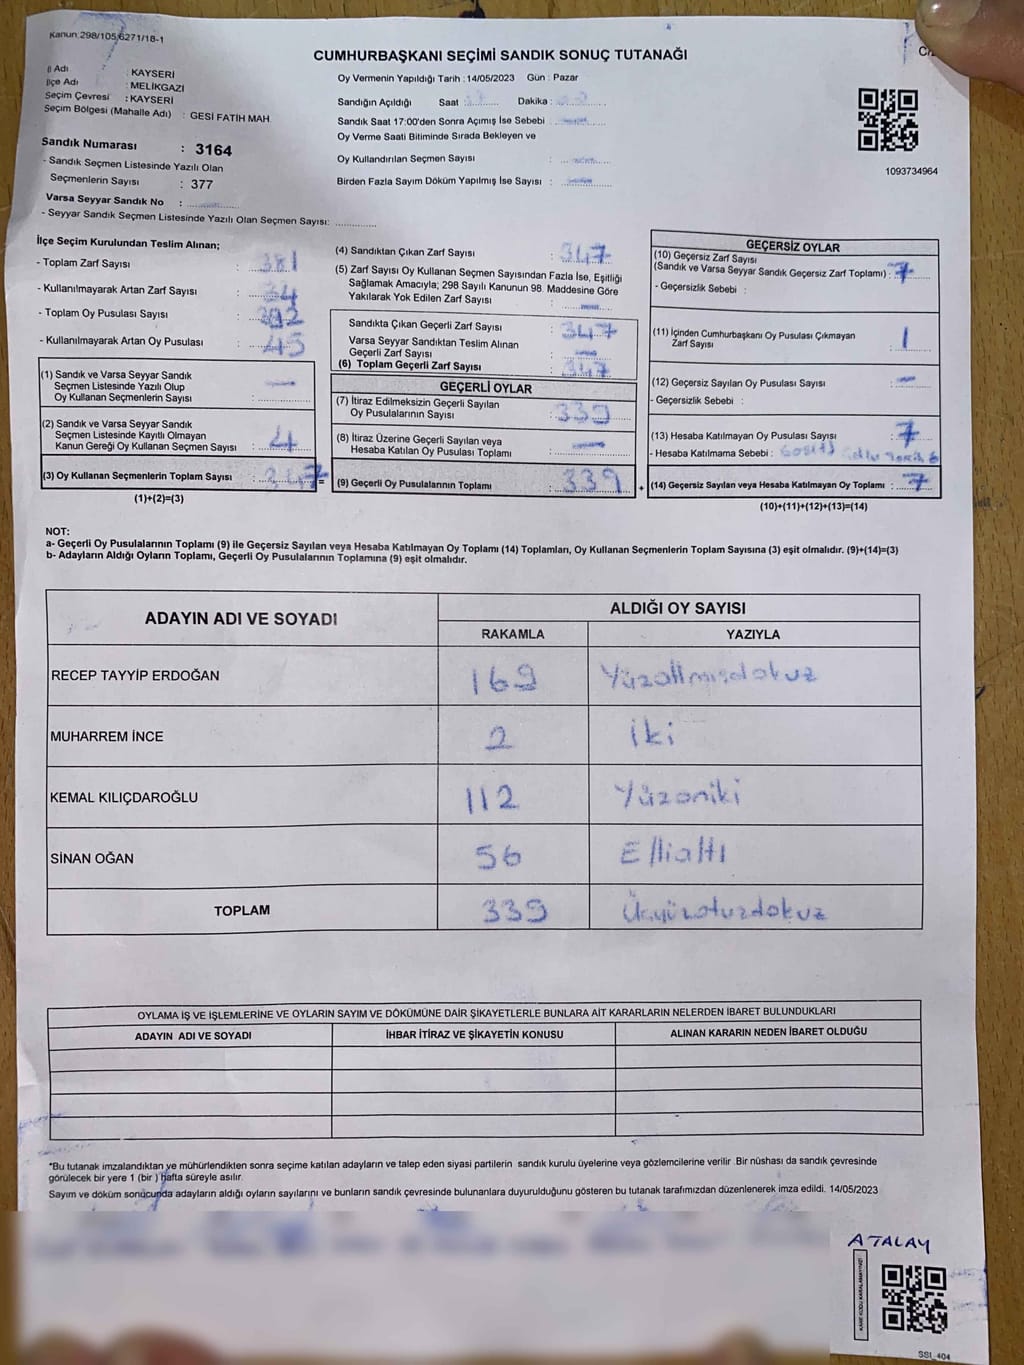 Kanun:298/105,6271/18-1
CUMHURBAŞKANI SEÇİMİ SANDIK SONUÇ TUTANAĞI
İl Adı : KAYSERİ
İlçe Adı : MELİKGAZİ
Seçim Çevresi : KAYSERİ
Seçim Bölgesi (Mahalle Adı) : GESİ FATİH MAH.
Sandık Numarası : 3164
- Sandık Seçmen Listesinde Yazılı Olan
Seçmenlerin Sayısı : 377
Varsa Seyyar Sandık No :
- Seyyar Sandık Seçmen Listesinde Yazılı Olan Seçmen Sayısı:
Oy Vermenin Yapıldığı Tarih :14/05/2023 Gün : Pazar
Sandığın Açıldığı Saat : Dakika :
Sandık Saat 17:00'den Sonra Açımış İse Sebebi :
Oy Verme Saati Bitiminde Sırada Bekleyen ve
Oy Kullandırılan Seçmen Sayısı :
Birden Fazla Sayım Döküm Yapılmış İse Sayısı :
1093734964
İlçe Seçim Kurulundan Teslim Alınan;
- Toplam Zarf Sayısı : 381
- Kullanılmayarak Artan Zarf Sayısı : 34
- Toplam Oy Pusulası Sayısı :
- Kullanılmayarak Artan Oy Pusulası : 45
(1) Sandık ve Varsa Seyyar Sandık
Seçmen Listesinde Yazılı Olup
Oy Kullanan Seçmenlerin Sayısı :
(2) Sandık ve Varsa Seyyar Sandık
Seçmen Listesinde Kayıtlı Olmayan
Kanun Gereği Oy Kullanan Seçmen Sayısı : 4
(3) Oy Kullanan Seçmenlerin Toplam Sayısı : 347 =
(1)+(2)=(3)
(4) Sandıktan Çıkan Zarf Sayısı : 347
(5) Zarf Sayısı Oy Kullanan Seçmen Sayısından Fazla İse, Eşitliği
Sağlamak Amacıyla; 298 Sayılı Kanunun 98. Maddesine Göre
Yakılarak Yok Edilen Zarf Sayısı :
Sandıkta Çıkan Geçerli Zarf Sayısı : 347
Varsa Seyyar Sandıktan Teslim Alınan
Geçerli Zarf Sayısı :
(6) Toplam Geçerli Zarf Sayısı : 347
GEÇERLİ OYLAR
(7) İtiraz Edilmeksizin Geçerli Sayılan
Oy Pusulalarının Sayısı : 339
(8) İtiraz Üzerine Geçerli Sayılan veya
Hesaba Katılan Oy Pusulası Toplamı :
(9) Geçerli Oy Pusulalarının Toplamı : 339 +
GEÇERSİZ OYLAR
(10) Geçersiz Zarf Sayısı
(Sandık ve Varsa Seyyar Sandık Geçersiz Zarf Toplamı) : 7
- Geçersizlik Sebebi :
(11) İçinden Cumhurbaşkanı Oy Pusulası Çıkmayan
Zarf Sayısı : 1
(12) Geçersiz Sayılan Oy Pusulası Sayısı :
- Geçersizlik Sebebi :
(13) Hesaba Katılmayan Oy Pusulası Sayısı : 7
- Hesaba Katılmama Sebebi :
(14) Geçersiz Sayılan veya Hesaba Katılmayan Oy Toplamı : 7
(10)+(11)+(12)+(13)=(14)
NOT:
a- Geçerli Oy Pusulalarının Toplamı (9) ile Geçersiz Sayılan veya Hesaba Katılmayan Oy Toplamı (14) Toplamları, Oy Kullanan Seçmenlerin Toplam Sayısına (3) eşit olmalıdır. (9)+(14)=(3)
b- Adayların Aldığı Oyların Toplamı, Geçerli Oy Pusulalarının Toplamına (9) eşit olmalıdır.
ADAYIN ADI VE SOYADI ALDIĞI OY SAYISI
RAKAMLA YAZIYLA
RECEP TAYYİP ERDOĞAN 169 Yüzaltmışdokuz
MUHARREM İNCE 2 iki
KEMAL KILIÇDAROĞLU 112 Yüzoniki
SİNAN OĞAN 56 Ellialtı
TOPLAM 339 Üçyüzotuzdokuz
OYLAMA İŞ VE İŞLEMLERİNE VE OYLARIN SAYIM VE DÖKÜMÜNE DAİR ŞİKAYETLERLE BUNLARA AİT KARARLARIN NELERDEN İBARET BULUNDUKLARI
ADAYIN ADI VE SOYADI İHBAR İTİRAZ VE ŞİKAYETİN KONUSU ALINAN KARARIN NEDEN İBARET OLDUĞU
*Bu tutanak imzalandıktan ve mühürlendikten sonra seçime katılan adayların ve talep eden siyasi partilerin sandık kurulu üyelerine veya gözlemcilerine verilir. Bir nüshası da sandık çevresinde
görülecek bir yere 1 (bir) hafta süreyle asılır.
Sayım ve döküm sonucunda adayların aldığı oyların sayılarını ve bunların sandık çevresinde bulunanlara duyurulduğunu gösteren bu tutanak tarafımızdan düzenlenerek imza edildi. 14/05/2023
ATALAY
KARE KODU KARALAMAYINIZ!
SSI_404